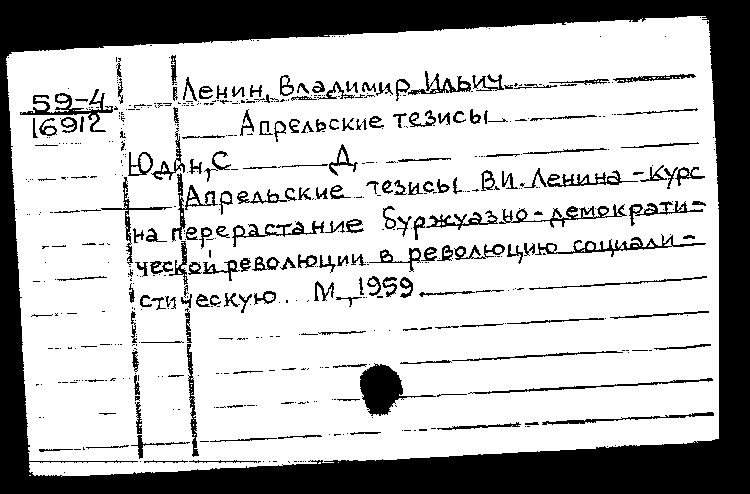 Ленин, Владимир Ильич
59-4
16912
Апрельские тезисы
Юдин, С Д,
Апрельские тезисы В.И. Ленина - курс
на перерастание буржуазно-демократи-
ческой революции в революцию социали-
стическую. М., 1959.